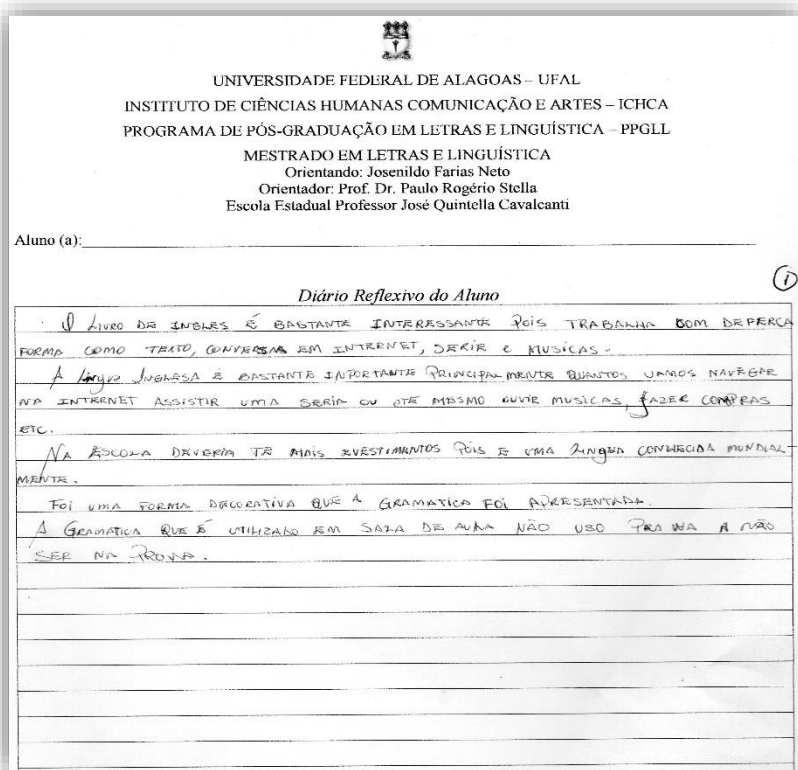 UNIVERSIDADE FEDERAL DE ALAGOAS – UFAL
INSTITUTO DE CIÊNCIAS HUMANAS COMUNICAÇÃO E ARTES – ICHCA
PROGRAMA DE PÓS-GRADUAÇÃO EM LETRAS E LINGUÍSTICA – PPGLL
MESTRADO EM LETRAS E LINGUÍSTICA
Orientando: Josenildo Farias Neto
Orientador: Prof. Dr. Paulo Rogério Stella
Escola Estadual Professor José Quintella Cavalcanti
Aluno (a):
1
Diário Reflexivo do Aluno
O LIVRO DE INGLES É BASTANTE INTERESSANTE POIS TRABALHA COM
FORMA COMO TEXTO, CONVERSAS EM INTERNET, SERIE E MUSICAS.
A Lingua INGLESA É BASTANTE INPORTANTE PRINCIPALMENTE QUANTOS VAMOS NAVEGAR
NA INTERNET ASSISTIR UMA SERIA OU OTE MESMO OUVIR MUSICAS, FAZER COMPRAS
ETC.
NA ESCOLA DEVERIA TE MAIS EVESTIMANTOS POIS E UMA LINGUA CONHECIDA MUNDIAL-
MENTE.
FOI UMA FORMA DECORATIVA QUE A GRAMATICA FOI APRESENTADA.
A GRAMATICA QUE É UTILIZADO EM SALA DE AULA NÃO USO PRA NA A NÃO
SER NA PROVA.